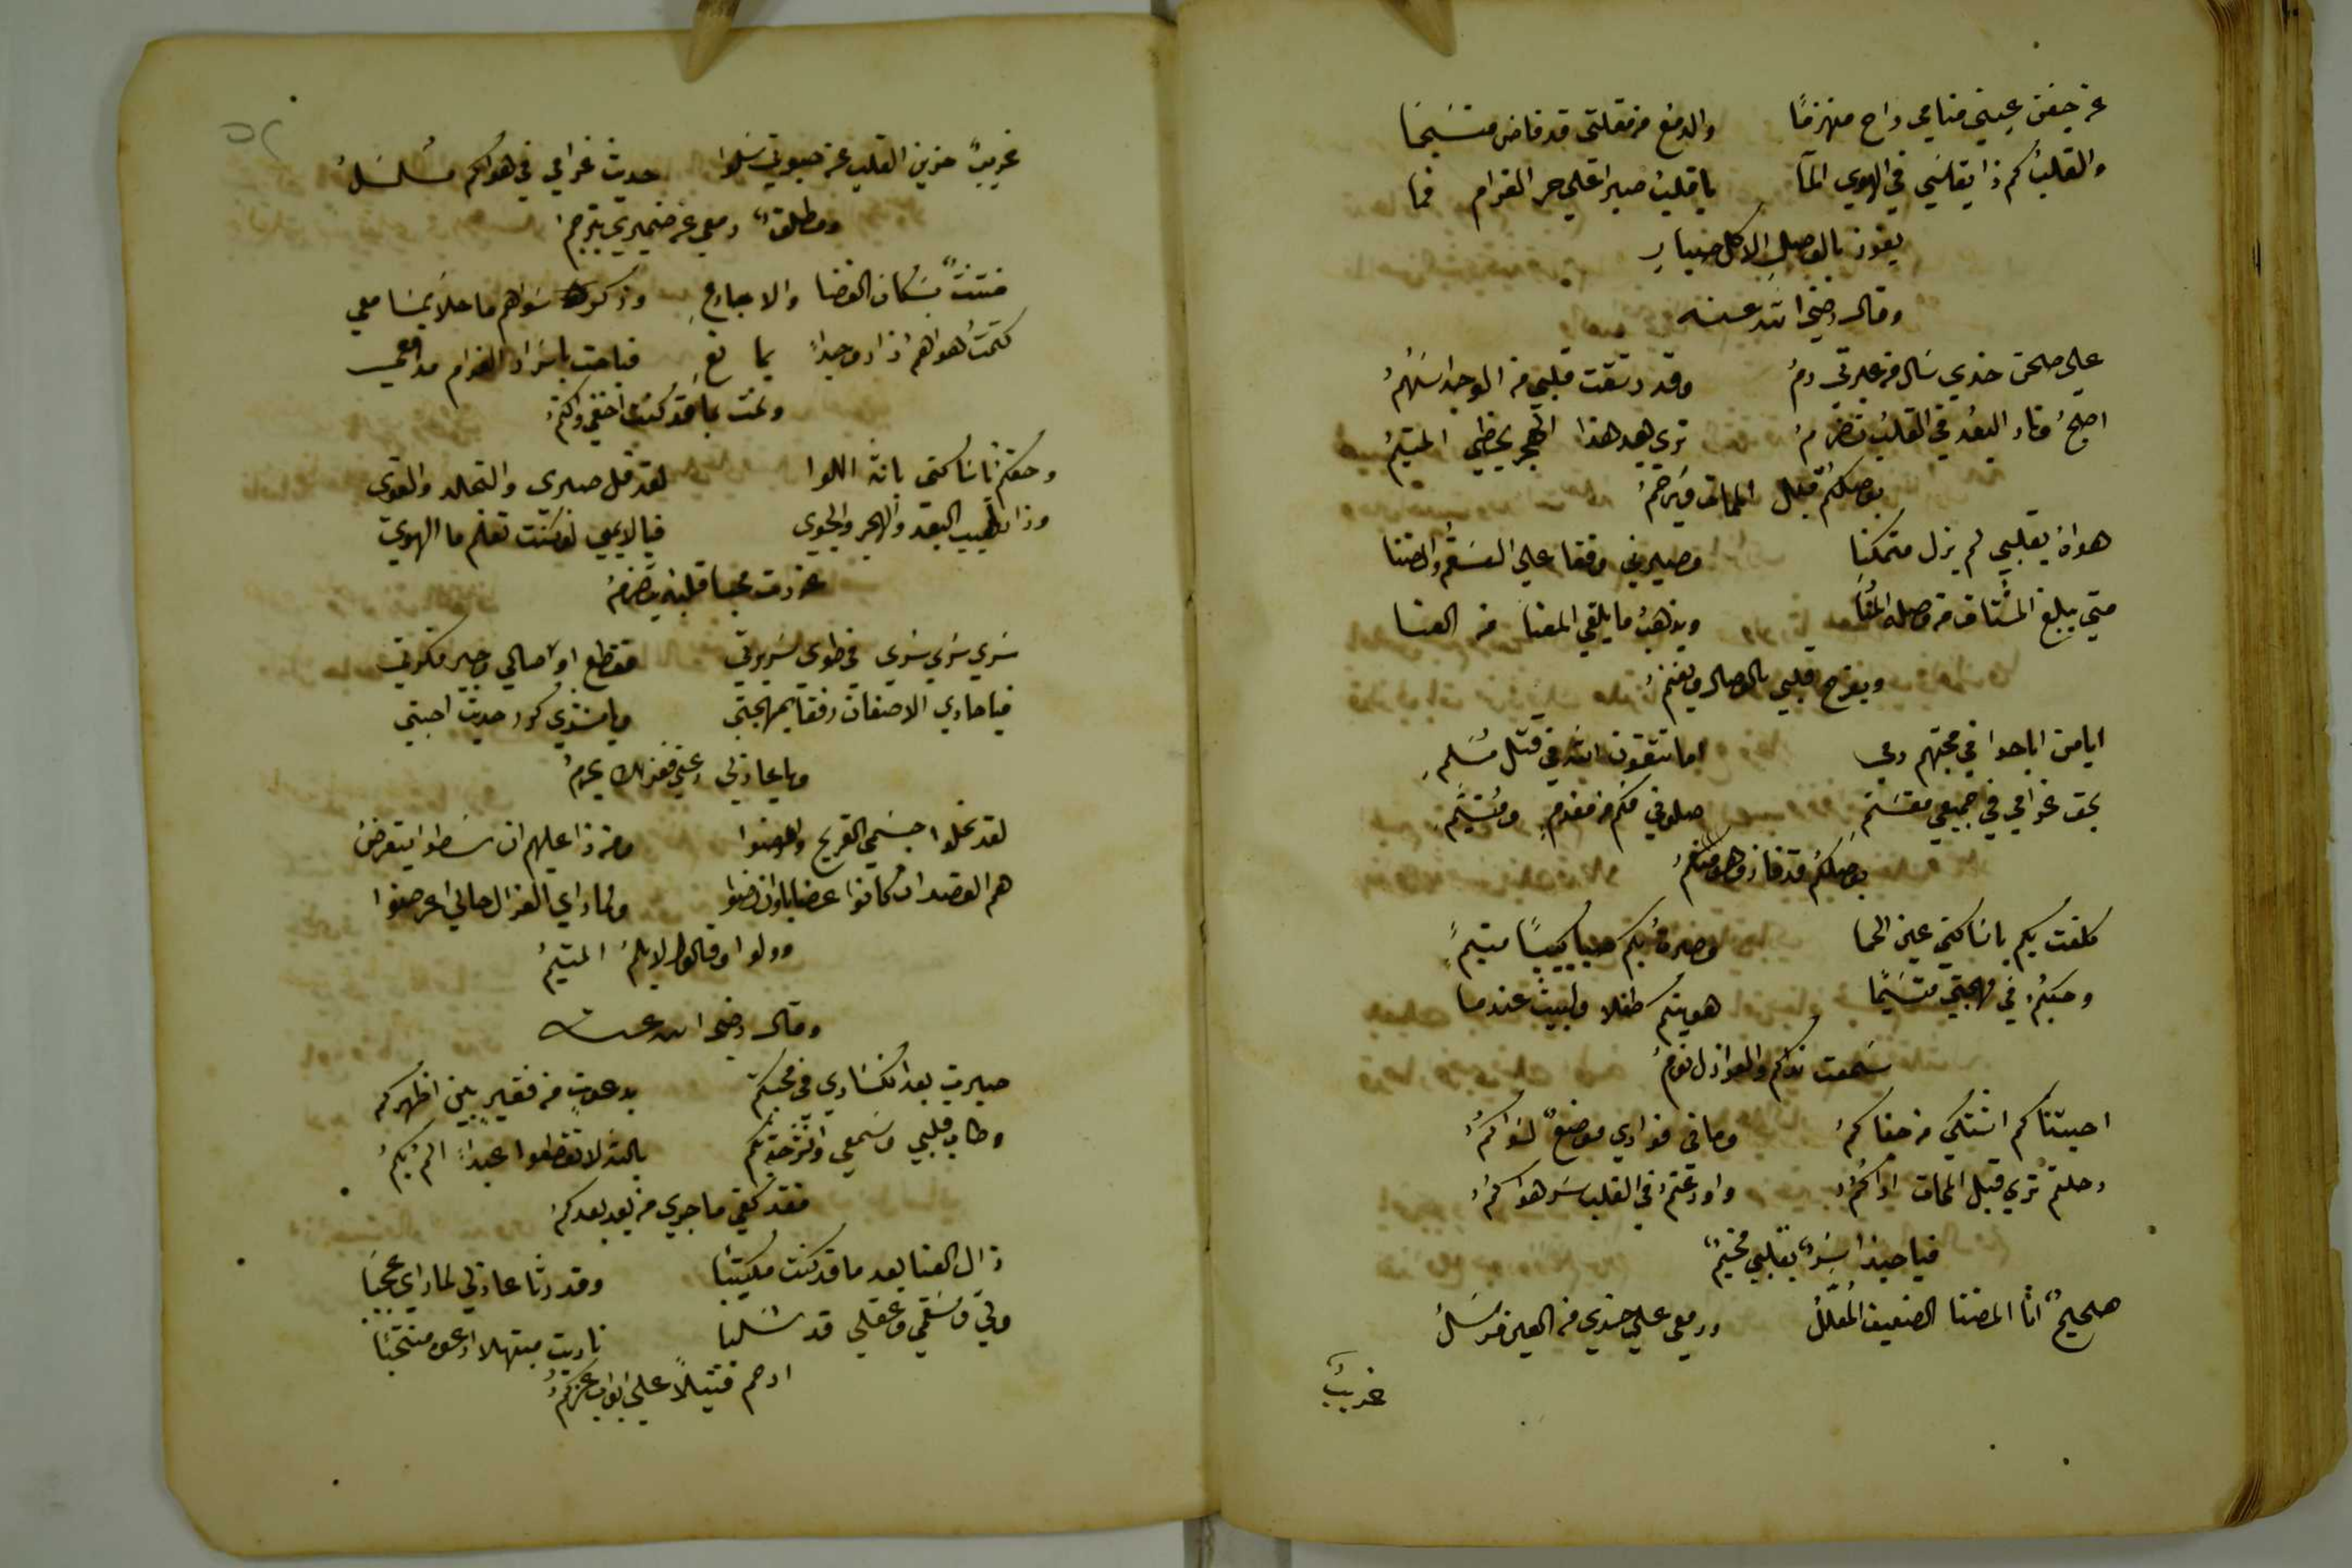 عن جفن عيني منامي راح منهزمًا والدمع من مقلتي قد فاض منسجما
والقلب كم ذا يقاسي في الهوي الما يا قلب صبرا علي حر الغرام فما
يفوز بالوصل الا كل صبار
وقال رضي الله عنه
علي صحن خدي سال من عبرتي دم وقد رشقت قلبي من الوجد اسهم
اصح ونار البعد في القلب تضرم تري بعد هذا الهجر يحظي المتيم
بوصلكم قبل الممات ويرحم
هواه بقلبي لم يزل متمكنا وصيرني وقفا علي السقم والضنا
متي يبلغ المشتاق من وصله المنا ويذهب ما يلقي المعنا من العنا
ويفرح قلبي بالوصال ويغنم
ايا من اباحوا في محبتهم دمي اما تتقون الله في قتل مسلم
بحق غرامي في جميعي مقسم صلوني فكم من مغرم ومتيم
بوصلكم قد فاز وهو منعم
كلفت بكم يا ساكني عين الحما وصرت بكم صبا كييبًا متيمً
وحبكم في مهجتي متسيمًا هويتكم طفلا ولبيت عندما
سمعت نداكم والعواذل نوم
احبتنا كم اشتكي من جفاكم وما في فوادي موضع لسواكم
رحلتم تري قبل الممات اراكم واودعتم في القلب سر هواكم
فيا حبذا سر بقلبي مخيم
صحيح انا المضنا الضعيف المعلل ودمعي علي خدي من العين مرسل
غريب
غريب حزين القلب عن صبوتي سلوا حديث غرامي في هواكم مسلسل
ومطلق دمعي عن ضميري يترجم
فتنت بسكان الغضا والاجارع وذكر سواهم ما حلا بمسامعي
كتمت هواهم اذ اروحدا بما نع فباحت باسرار الغرام مدامعي
ونمت بما قد كنت اخفي واكتم
وحقكم يا ساكني بانة اللوا لقد قل صبري والتجلد والقوي
وذا لهيب البعد والهجر والجوي فيا لايمي لو كنت تعلم ما الهوي
عذرت محبا قلبه يتضرم
سري سري سري في طوي سريرتي فقطع اوصالي وحير فكرتي
فيا حادي الاضعان رفقا بمهجتي ويا منشدي كرر حديث احبتي
ويا عاذلي دعني فعذلك يحرم
لقد نحلوا جسمي القريح وامرضوا ومن ذا عليهم ان سطوا يتعرض
هم القصد ان كانوا غضابا وان رضوا ولما راي العذال حالي اعرضوا
وولوا وقالوا لا يلم المتيم
وقال رضي الله عنه
صبرت بعد انكساري في محبتكم بدعوت من فقير بين اظهركم
وطاب قلبي وسمعي والترحت بكم بالله لا تقطعوا عبدا الم بكم
فقد كفي ما جري من بعد بعدكم
زال العنا بعد ما قد كنت مكتئبا وقد رثا عاذلي لما راي عجبا
وفي وسقمي وعقلي قد سلبا ناديت مبتهلا ادعو منتحبا
ارحم قتيلاً علي ابواب عزكم